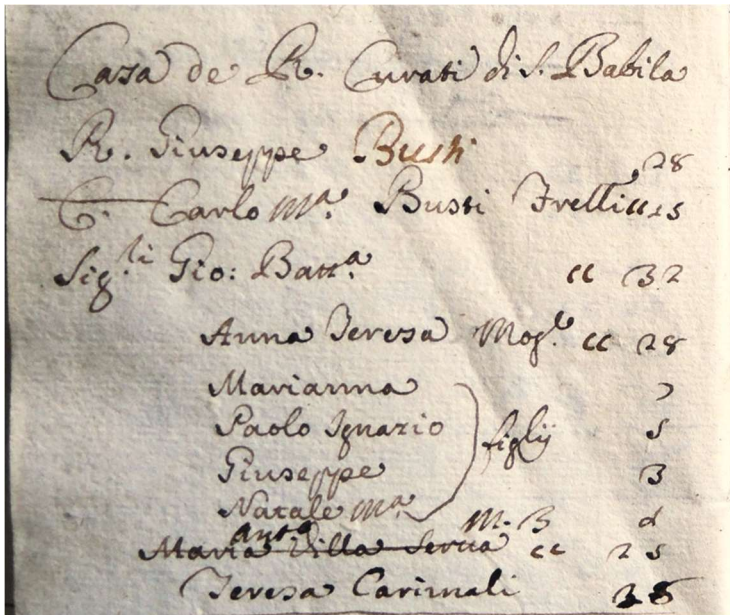 Casa de R. Curati di S. Babila
R. Giuseppe Busti 28
C. Carlo Mª. Busti Frelli cc 25
Sig.li Gio: Battª. cc 32
Anna Teresa Mog.e cc 28
Marianna 7
Paolo Ignazio figlij 5
Giuseppe 3
Natale Mª M. 3 d
antª
Maria Villa Serva cc 25
Teresa Carimali